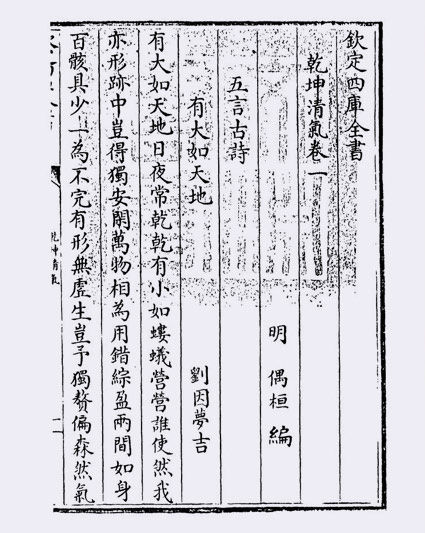 欽定四庫全書
乾坤清氣卷一
明　偶桓　編
五言古詩
有大如天地　劉因夢吉
有大如天地日夜常乾乾有小如螻蟻營營誰使然我
亦形跡中豈得獨安閑萬物相為用錯綜盈兩間如身
百骸具少一為不完有形無虛生豈予獨贅偏森然氣
乾坤清氣
一